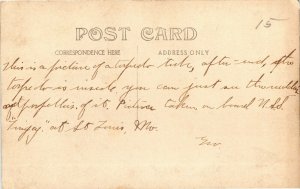 15
POST CARD
CORRESPONDENCE HERE
ADDRESS ONLY
This is a picture of a torpedo tube, after end, after
torpedo is inside you can just see the rudder
and propellers of it. Picture taken on board U.S.S.
at St Louis, Mo.
Geo